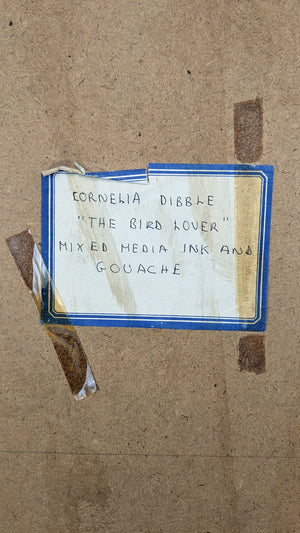 CORNELIA DIBBLE
"THE BIRD LOVER"
MIXED MEDIA INK AND
GOUACHE